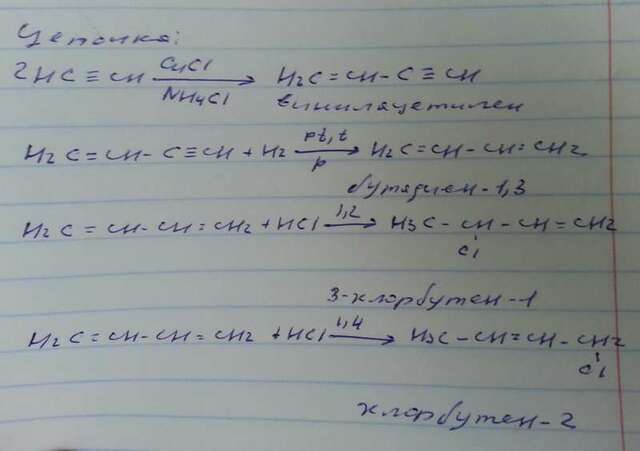 Цепочка:
2HC≡CH CuCl NH4Cl → H2C=CH-C≡CH
винилацетилен
H2C=CH-C≡CH + H2 Pt, t p → H2C=CH-CH=CH2
бутадиен-1,3
H2C=CH-CH=CH2 + HCl 1,2 → H3C-CH-CH=CH2
Cl
3-хлорбутен-1
H2C=CH-CH=CH2 + HCl 1,4 → H3C-CH=CH-CH2
Cl
хлорбутен-2